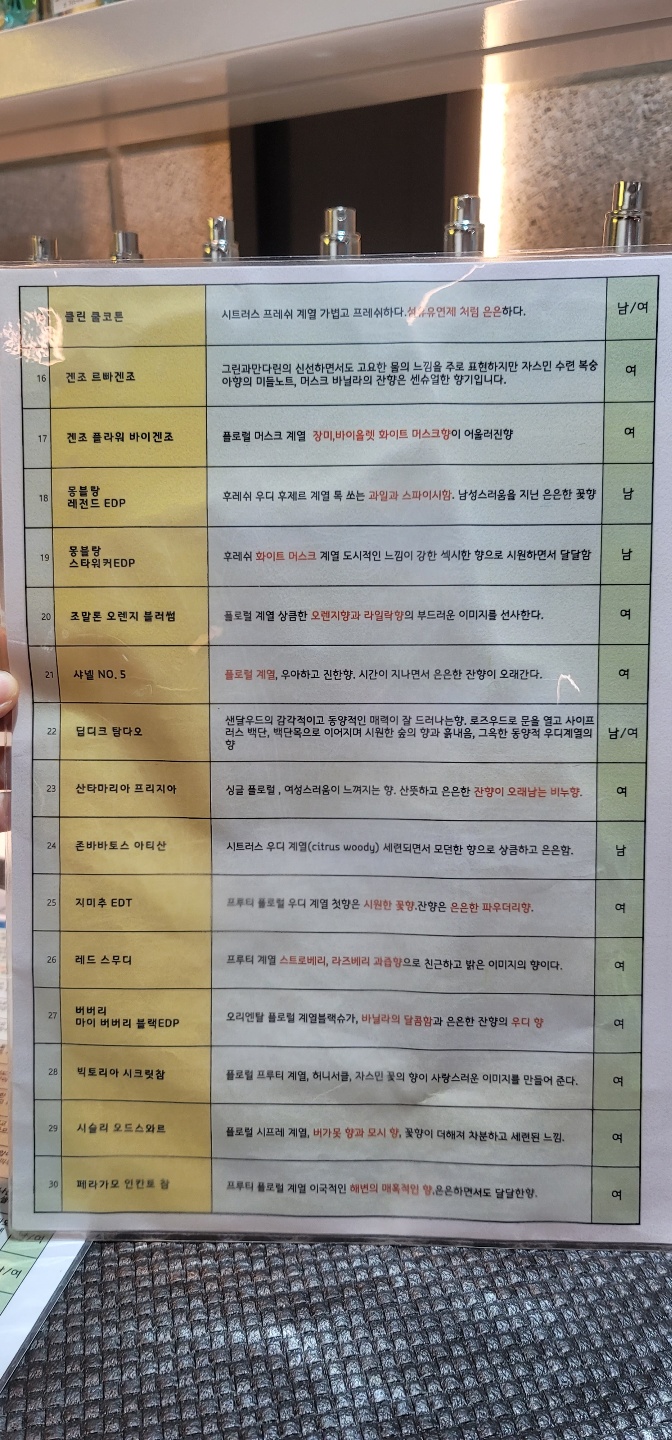 클린 쿨코튼 시트러스 프레쉬 계열 가볍고 프레쉬하다.섬유유연제 처럼 은은하다. 남/여
16 겐조 르빠겐조 그린과만다린의 신선하면서도 고요한 물의 느낌을 주로 표현하지만 자스민 수련 복숭
아향의 미들노트, 머스크 바닐라의 잔향은 센슈얼한 향기입니다. 여
17 겐조 플라워 바이겐조 플로럴 머스크 계열 장미,바이올렛 화이트 머스크향이 어울러진향 여
18 몽블랑
레전드 EDP 후레쉬 우디 후제르 계열 톡 쏘는 과일과 스파이시함. 남성스러움을 지닌 은은한 꽃향 남
19 몽블랑
스타워커EDP 후레쉬 화이트 머스크 계열 도시적인 느낌이 강한 섹시한 향으로 시원하면서 달달함 남
20 조말론 오렌지 블러썸 플로럴 계열 상큼한 오렌지향과 라일락향의 부드러운 이미지를 선사한다. 여
21 샤넬 NO.5 플로럴 계열, 우아하고 진한향. 시간이 지나면서 은은한 잔향이 오래간다. 여
22 딥디크 탐다오 샌달우드의 감각적이고 동양적인 매력이 잘 드러나는향. 로즈우드로 문을 열고 사이프
러스 백단, 백단목으로 이어지며 시원한 숲의 향과 흙내음, 그윽한 동양적 우디계열의
향 남/여
23 산타마리아 프리지아 싱글 플로럴 , 여성스러움이 느껴지는 향. 산뜻하고 은은한 잔향이 오래남는 비누향. 여
24 존바바토스 아티산 시트러스 우디 계열(citrus woody) 세련되면서 모던한 향으로 상큼하고 은은함. 남
25 지미추 EDT 프루티 플로럴 우디 계열 첫향은 시원한 꽃향.잔향은 은은한 파우더리향. 여
26 레드 스무디 프루티 계열 스트로베리, 라즈베리 과즙향으로 친근하고 밝은 이미지의 향이다. 여
27 버버리
마이 버버리 블랙EDP 오리엔탈 플로럴 계열블랙슈가, 바닐라의 달콤함과 은은한 잔향의 우디 향 여
28 빅토리아 시크릿참 플로럴 프루티 계열, 허니서클, 자스민 꽃의 향이 사랑스러운 이미지를 만들어 준다. 여
29 시슬리 오드스와르 플로럴 시프레 계열, 버가못 향과 모시 향, 꽃향이 더해져 차분하고 세련된 느낌. 여
30 페라가모 인칸토 참 프루티 플로럴 계열 이국적인 해변의 매혹적인 향,은은하면서도 달달한향. 여
/여